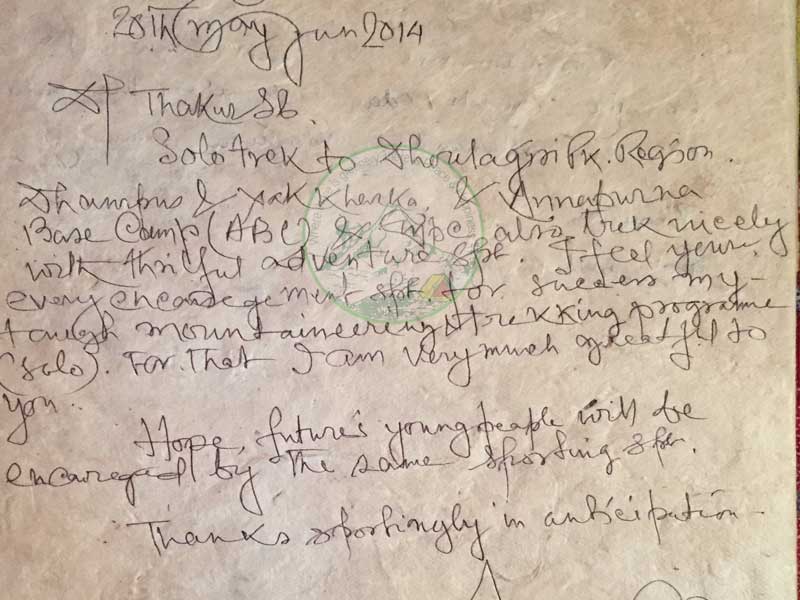 20Th may jun 2014
Thakur Sb.
Solo trek to Dhoulagiri Pk. Region.
Dhumpus & yak Kharka, & Annapurna
Base Camp (ABC) & also trek nicely
with thrilful adventure spt. I feel your
every encouragement spt. for success my-
tough mountaineering & trekking programe
(Solo). For that I am very much greatful to
you.
Hope, future's young people will be
encouraged by the same sporting spt.
Thanks sportingly in anticipation-